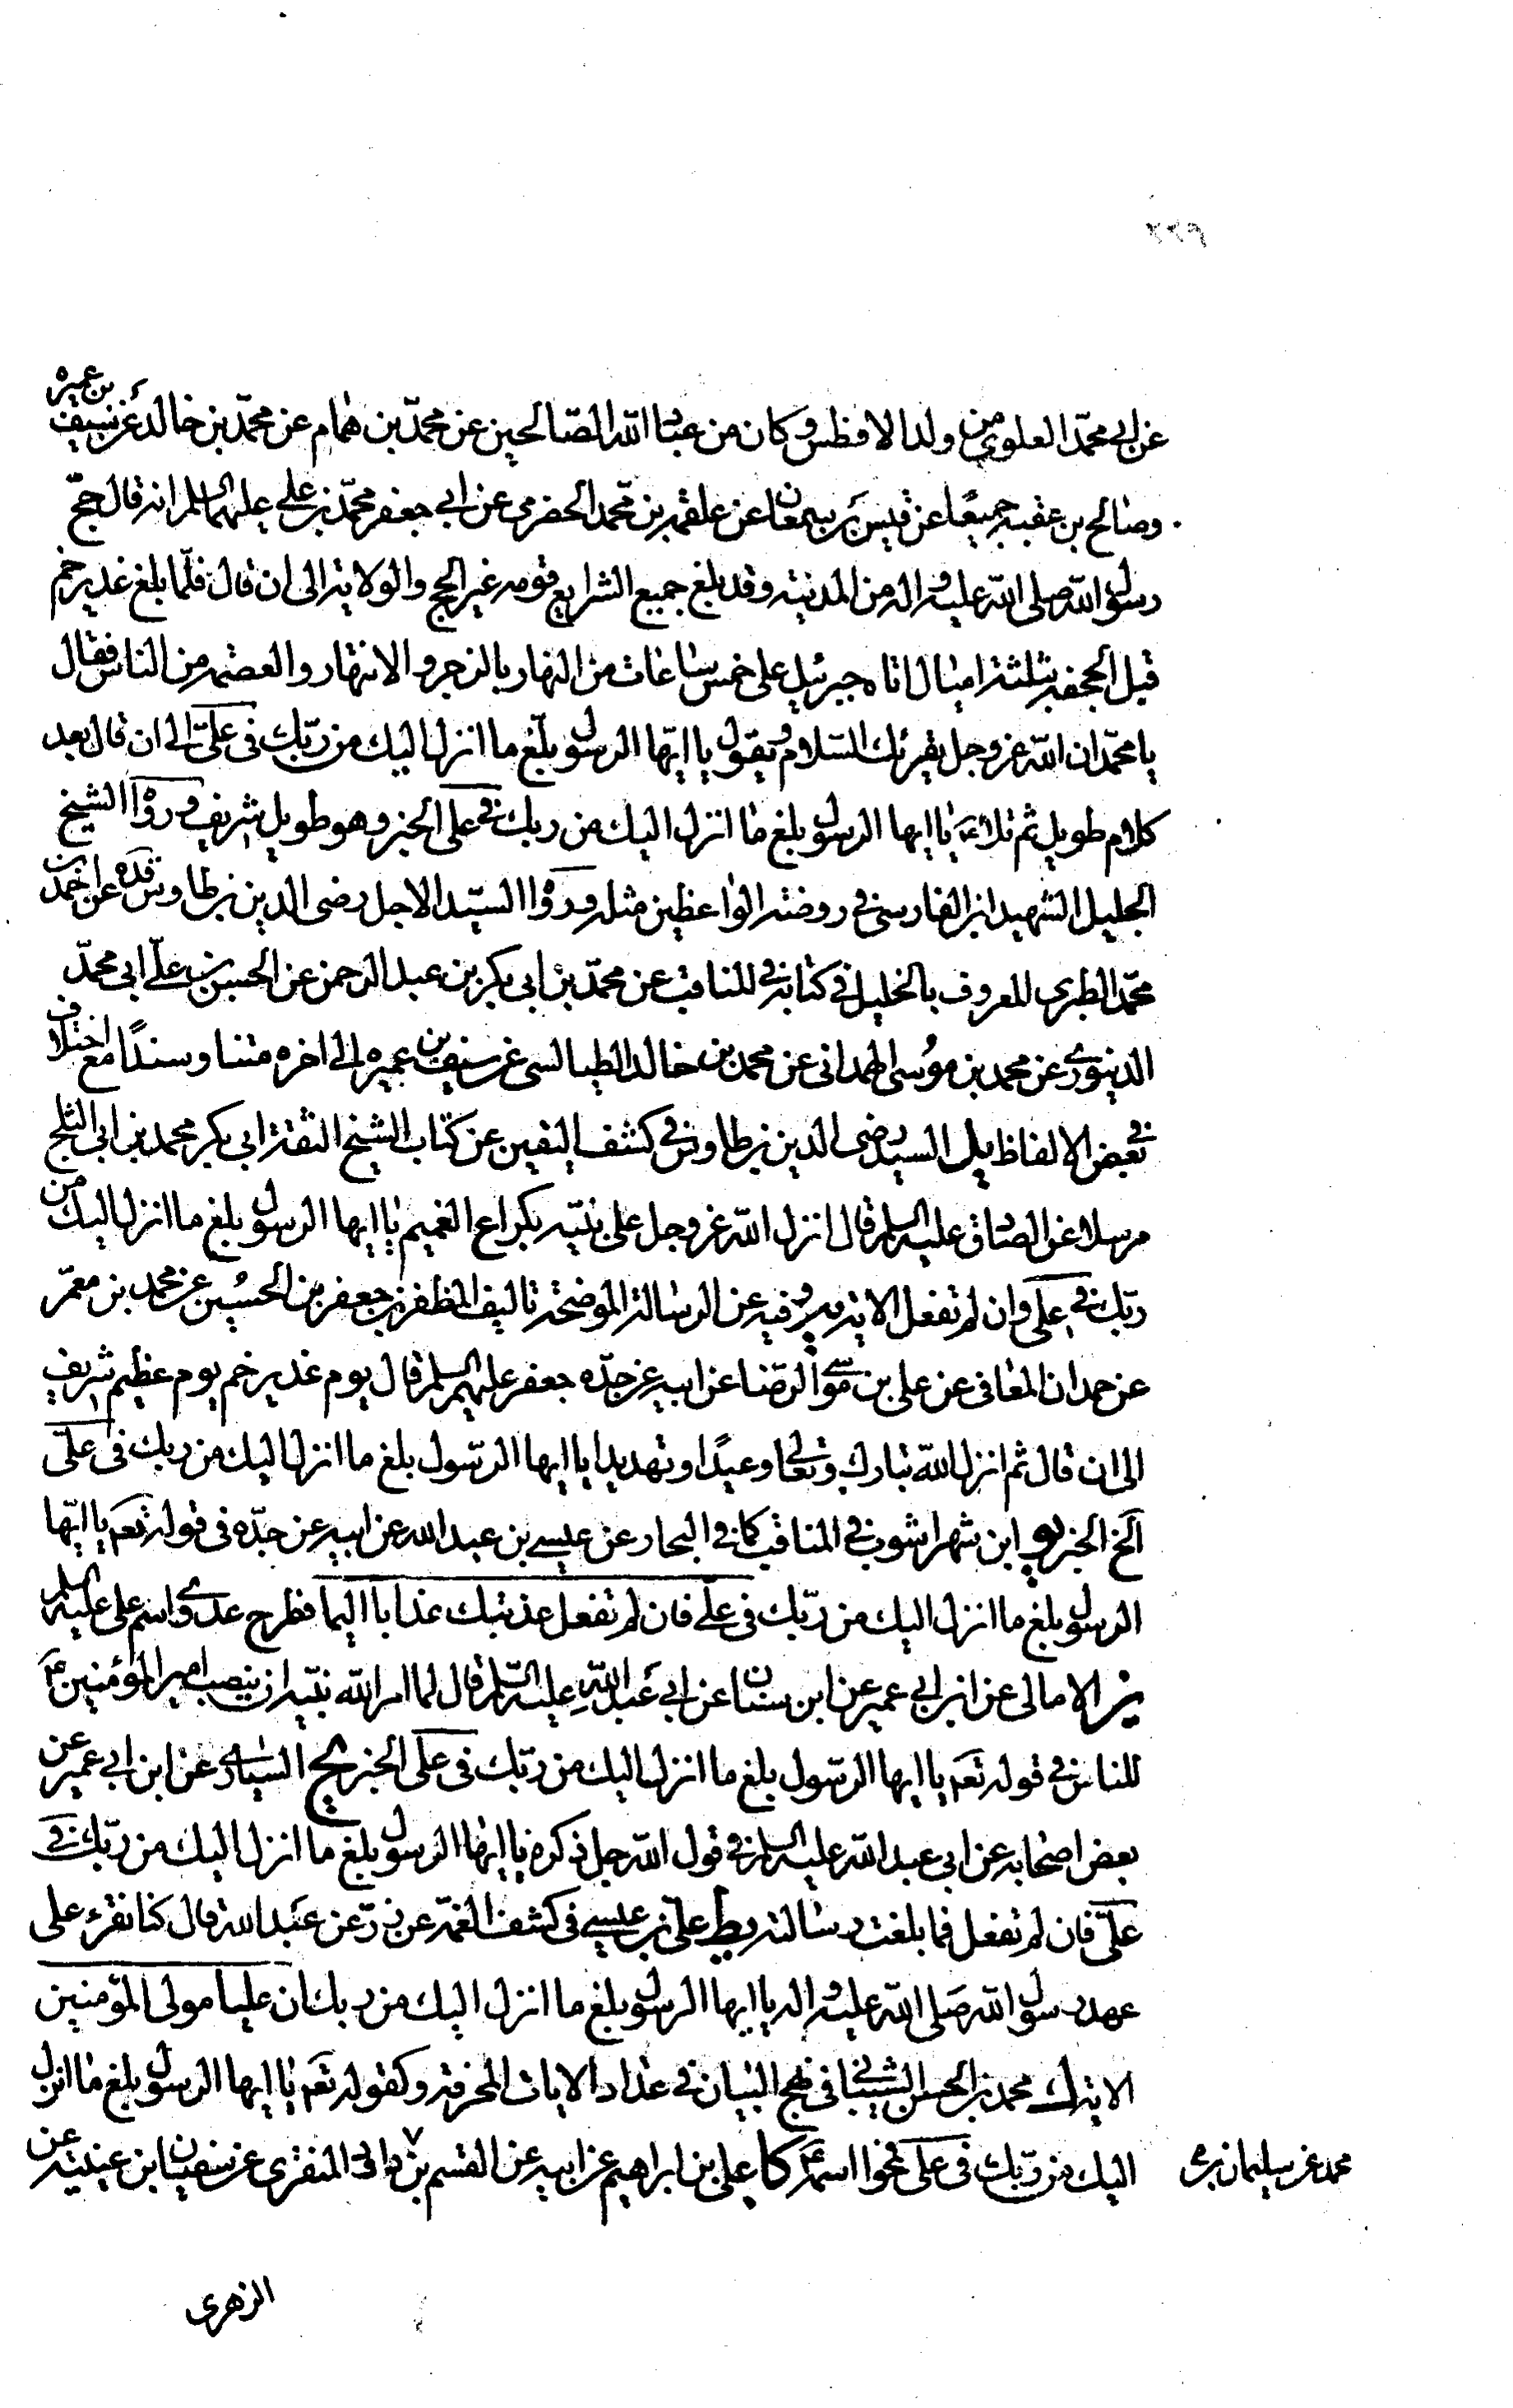 ٢٢٩
عن ابي محمّد العلوي من ولد الافطس وكان من عباد الله الصّالحين عن محمّد بن همام عن محمّد بن خالد عن سيف بن عميره
وصالح بن عقبه جميعًا عن قيس بن سمعان عن علقمه بن محمد الحضرمي عن ابي جعفر محمّد بن علي عليهما السلم انه قال حجّ
رسول الله صلى الله عليه واله من المدينه وقد بلغ جميع الشرايع قومه غير الحج والولاية الى ان قال فلمّا بلغ غدير خم
قبل الجحفه بثلثة اميال اتاه جبرئيل على خمس ساعات من النهار بالزجر والانتهار والعصمه من الناس فقال
يا محمّد ان الله عز وجل يقرئك السّلام ويقول يا ايّها الرسول بلّغ ما انزل اليك من ربّك في عليّ الى ان قال بعد
كلام طويل ثم تلاء يا ايها الرسول بلغ ما انزل اليك من ربك في علي الخبر وهو طويل شريف ورواه الشيخ
الجليل الشهيد ابن الفارسي في روضة الواعظين مثله ورواه السيّد الاجل رضي الدين بن طاوس قده عن احمد بن
محمّد الطبري المعروف بالخليل في كتابه في المناقب عن محمّد بن ابي بكر بن عبد الرحمن عن الحسن بن عليّ ابي محمّد
الدينوري عن محمد بن موسى الهمداني عن محمد بن خالد الطيالسي عن سيف بن عميره الى اخره متنا وسندًا مع اختلاف
في بعض الالفاظ يد السيد رضي الدين بن طاوس في كشف اليقين عن كتاب الشيخ الثقة ابي بكر محمد بن ابي الثلج
مرسلا عن الصادق عليه السلم قال انزل الله عز وجل على نبيّه بكراع الغميم يا ايها الرسول بلغ ما انزل اليك من
ربّك في علي وان لم تفعل الاية يه وفيه عن الرسالة الموضحة تاليف المظفر بن جعفر بن الحسين عن محمد بن معمّر
عن حمدان المعافي عن علي بن موسى الرضا عن ابيه عن جدّه جعفر عليهم السلم قال يوم غدير خم يوم عظيم شريف
الى ان قال ثم انزل الله تبارك وتعالى وعيدًا وتهديدا يا ايها الرسول بلغ ما انزل اليك من ربك في عليّ
الخ الخبر يو ابن شهراشوب في المناقب كما في البحار عن عيسى بن عبد الله عن ابيه عن جدّه في قوله تعم يا ايّها
الرسول بلغ ما انزل اليك من ربّك في عليّ فان لم تفعل عذبتك عذابا اليما فطرح عدوي اسم علي عليه السلم
يز الامالي عن ابن ابي عمير عن ابن سنان عن ابي عبد الله عليه السّلم قال لما امر الله نبيّه ان ينصب امير المؤمنين ع
للناس في قوله تعم يا ايها الرسول بلغ ما انزل اليك من ربّك في علي الخبر يح السياري عن ابن ابي عمير عن
بعض اصحابه عن ابي عبد الله عليه السلم في قول الله جل ذكره يا ايها الرسول بلغ ما انزل اليك من ربّك في
عليّ فان لم تفعل فما بلغت رسالته يط علي بن عيسى في كشف الغمّه عن زرّ عن عبد الله قال كنا نقرء على
عهد رسول الله صلى الله عليه واله يا ايها الرسول بلغ ما انزل اليك من ربك ان عليا مولى المؤمنين
الاية ك محمد بن الحسن الشيباني في نهج البيان في عداد الايات المحرفة وكقوله تعم يا ايها الرسول بلغ ما انزل
اليك من ربّك في علي فمحوا اسمه ع كا علي بن ابراهيم عن ابيه عن القسم بن المنقري عن سفيان ابن عيينه عن
محمد عن سليمان بن
الزهري